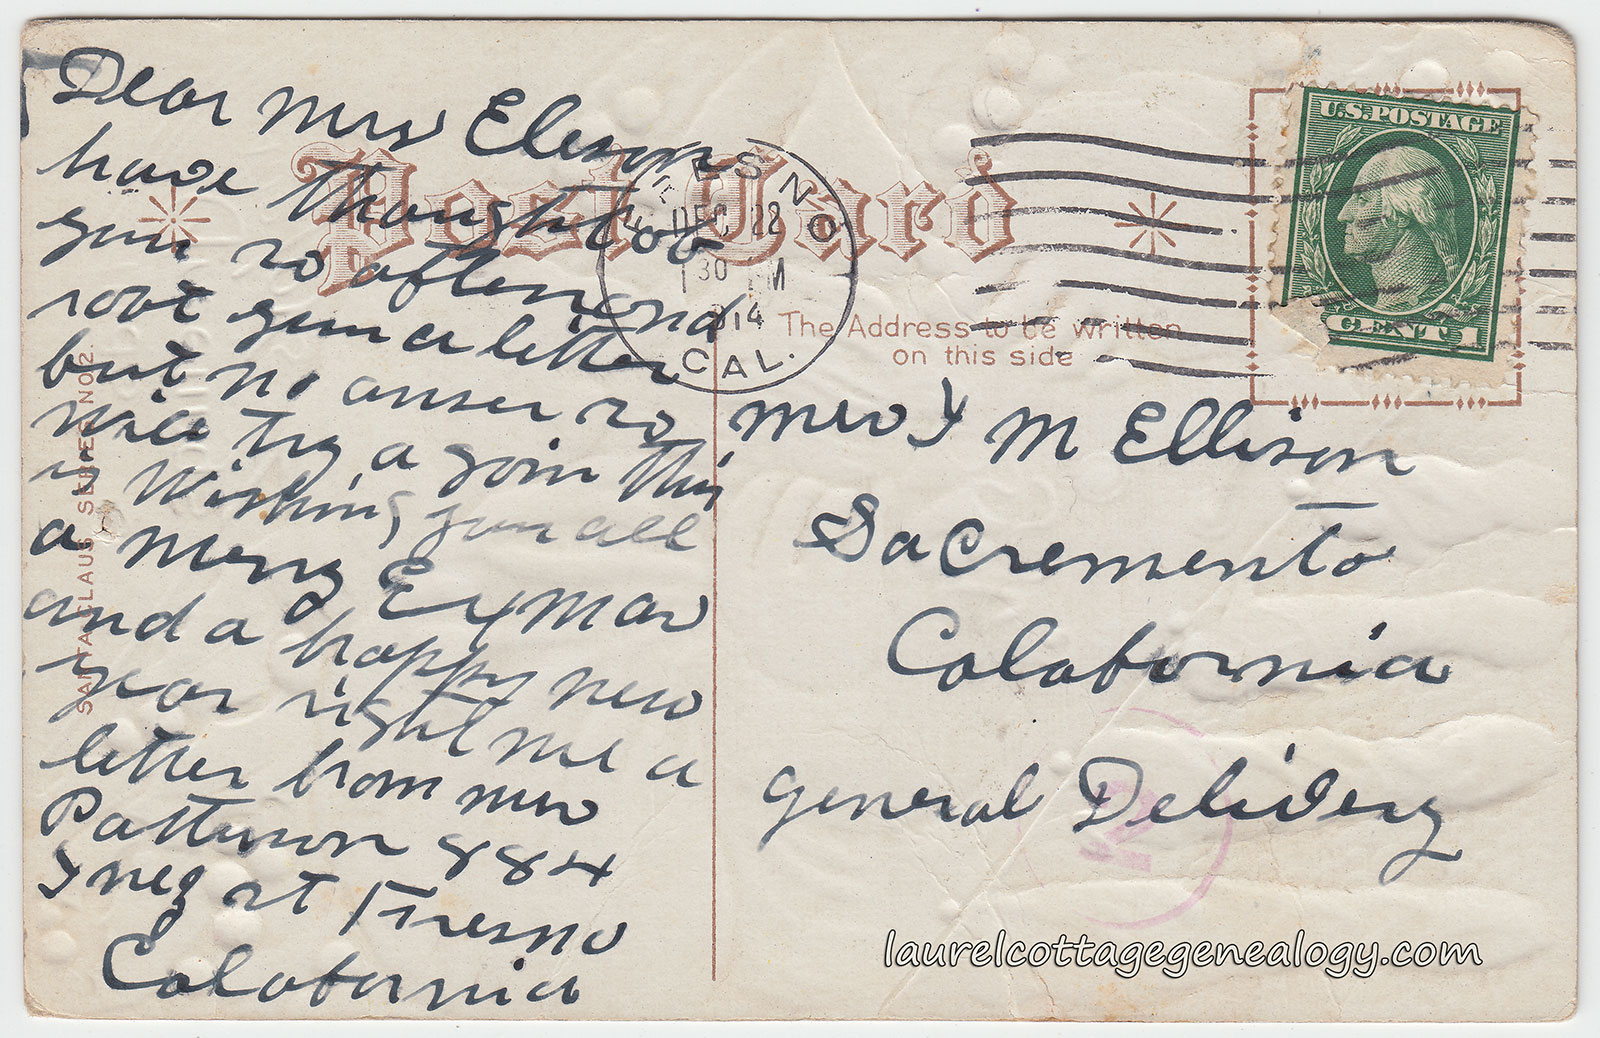 Dear Mrs Elerson
have thought ob
you so often and
rote you a letter
but no anser so
will try a goin this
is Wishing you all
a Merry Exmas
and a happy new
year right me a
letter from mrs
Patterson 884
st Fresno
Calabornia
Post Card
The Address to be written
on this side
FRESNO
DEC 22
30 PM
1914
CAL.
U.S. POSTAGE
1 CENT 1
mrs J M Ellison
Sacremento
Calabornia
general Delivery
2
SANTA CLAUS SERIES NO 2.
laurelcottagegenealogy.com